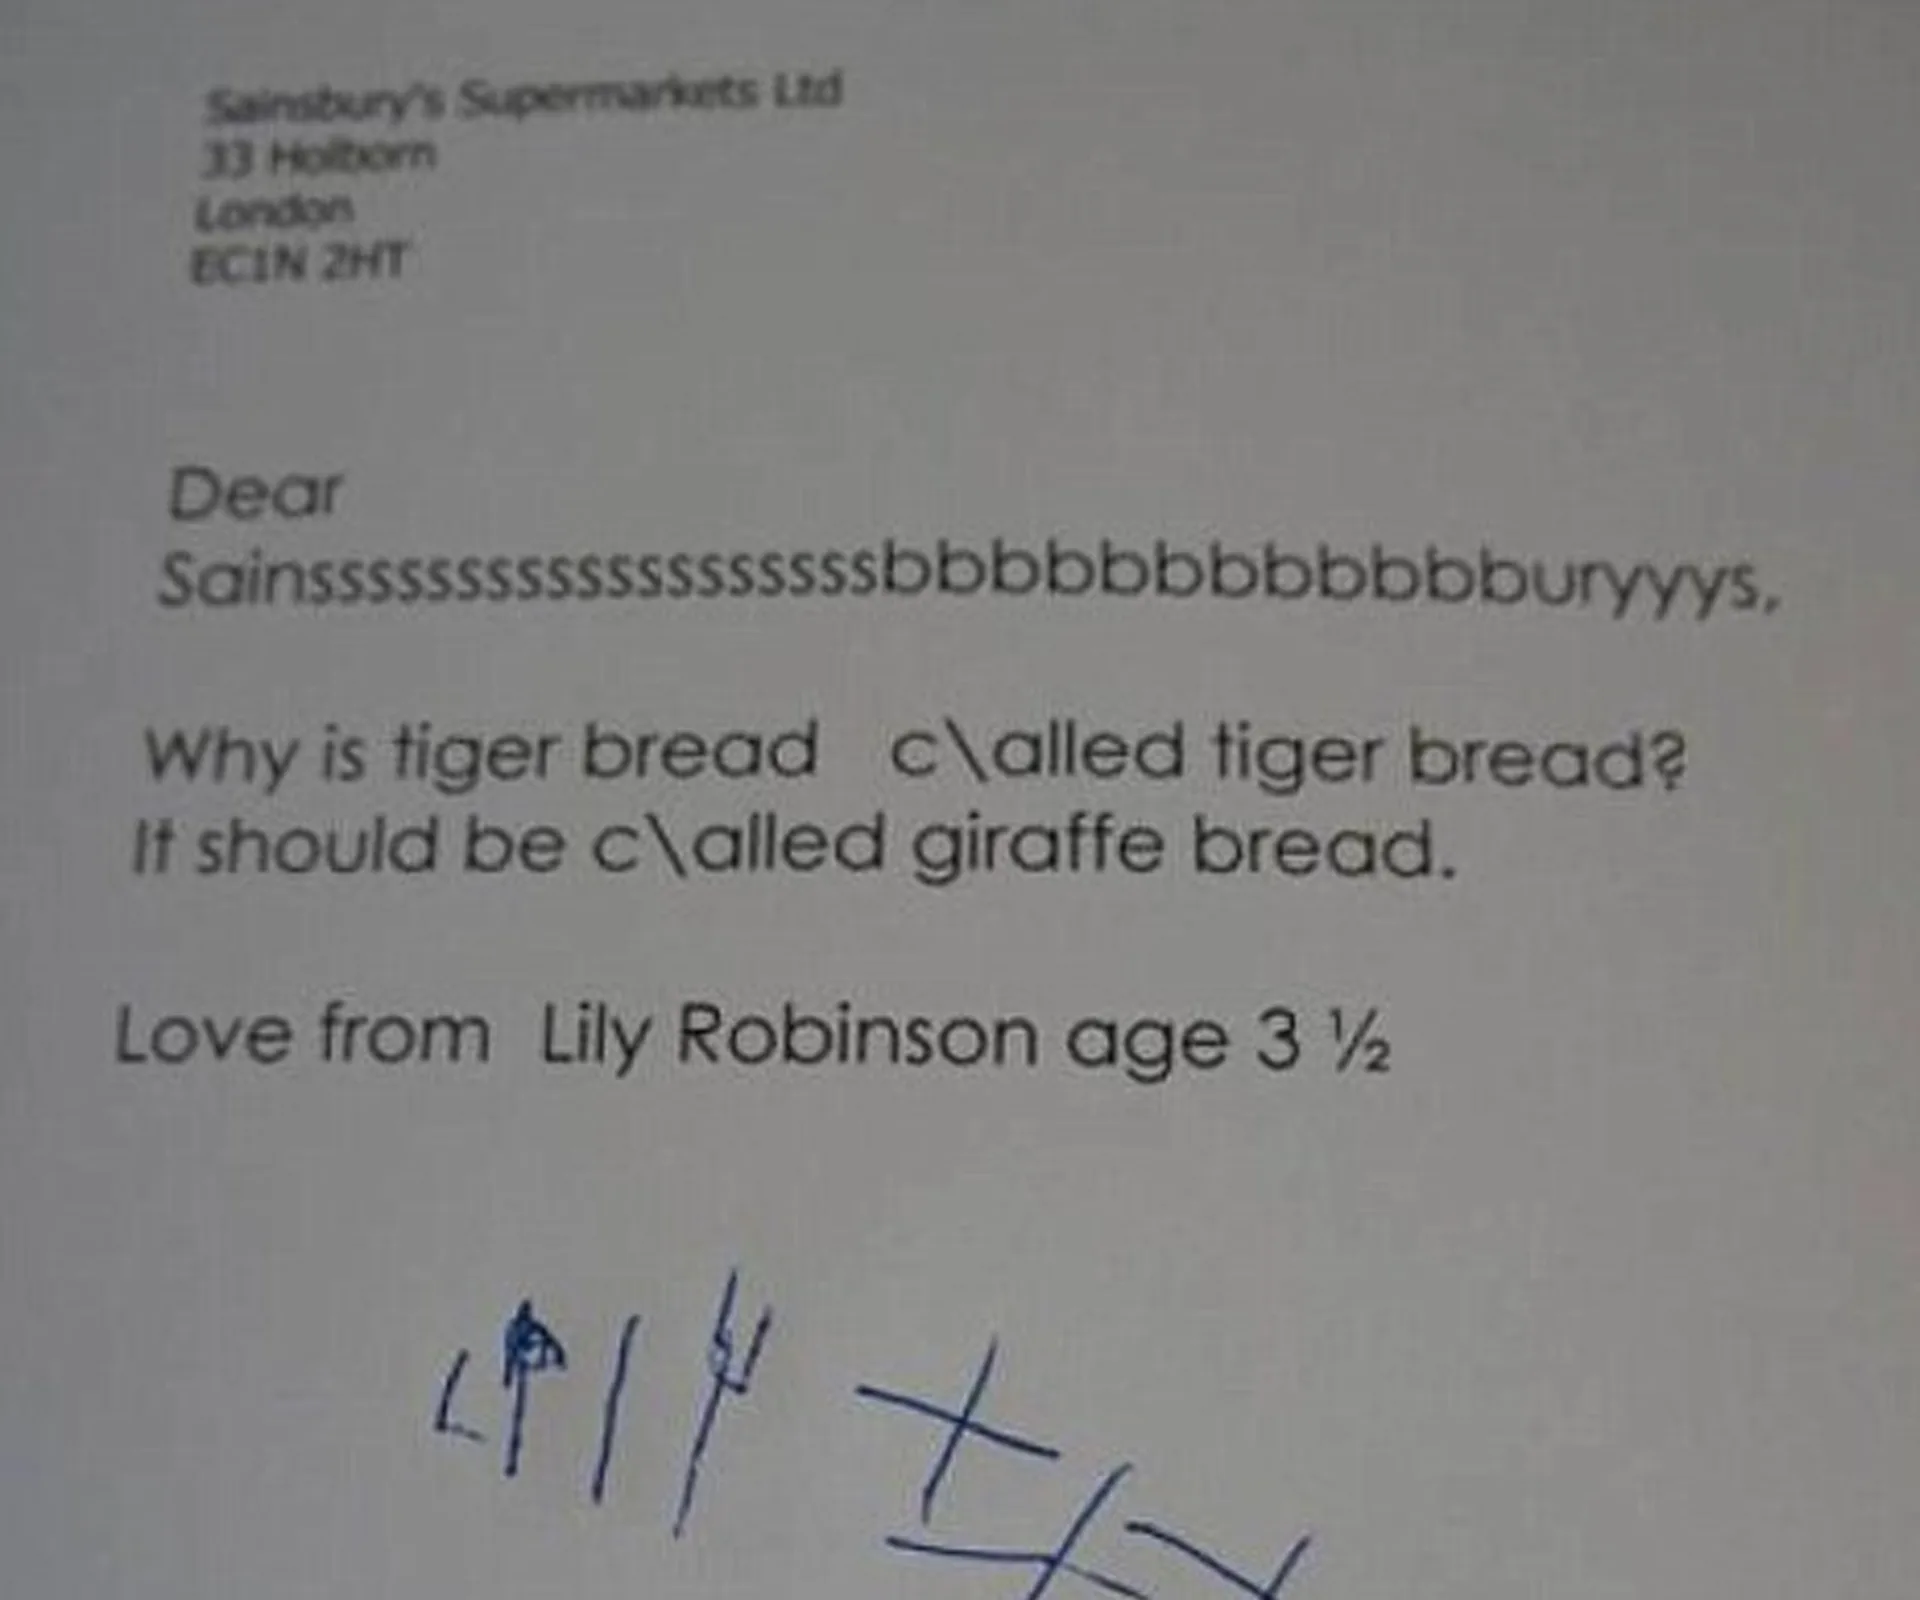 Sainsbury's Supermarkets Ltd
33 Holborn
London
EC1N 2HT
Dear
Sainsssssssssssssssssssbbbbbbbbbbbburyyys,
Why is tiger bread c\alled tiger bread?
It should be c\alled giraffe bread.
Love from Lily Robinson age 3 ½